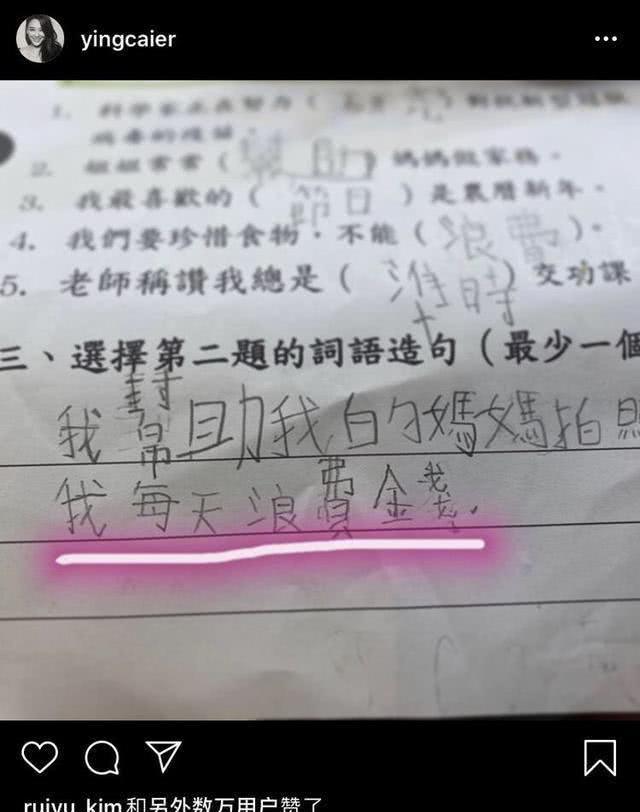 yingcaier
1. 科學家正在努力（
病毒的疫苗。
2. 姐姐常常（幫助）媽媽做家務。
3. 我最喜歡的（節日）是農曆新年。
4. 我們要珍惜食物，不能（浪費）。
5. 老師稱讚我總是（準時）交功課
三、選擇第二題的詞語造句（最少一個
我幫助我的媽媽拍照
我每天浪費金錢.
ruiyu_kim和另外数万用户赞了